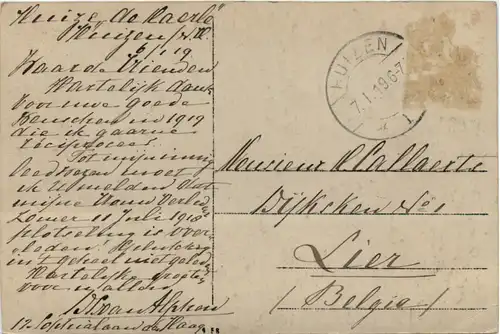 Huize "de Kaerle"
Huizen /N.H.
6/1.19
Waarde Vrienden
Hartelijk dank
voor uwe goede
Wenschen in 1919
die ik gaarne
reciproceer.
Tot mijn innig
leedwezen moet
ik U melden dat
mijne Vrouw verleden
Zomer 11 Juli 1918
plotseling is over-
leden!
in 't geheel niet geleden
Hartelijke groeten
voor U allen
van Alphen
12. Sophialaan den Haag
HUIZEN
7.1.19 6-7
Monsieur R Callaerts
Dijksken No 1
Lier
/ Belgie /